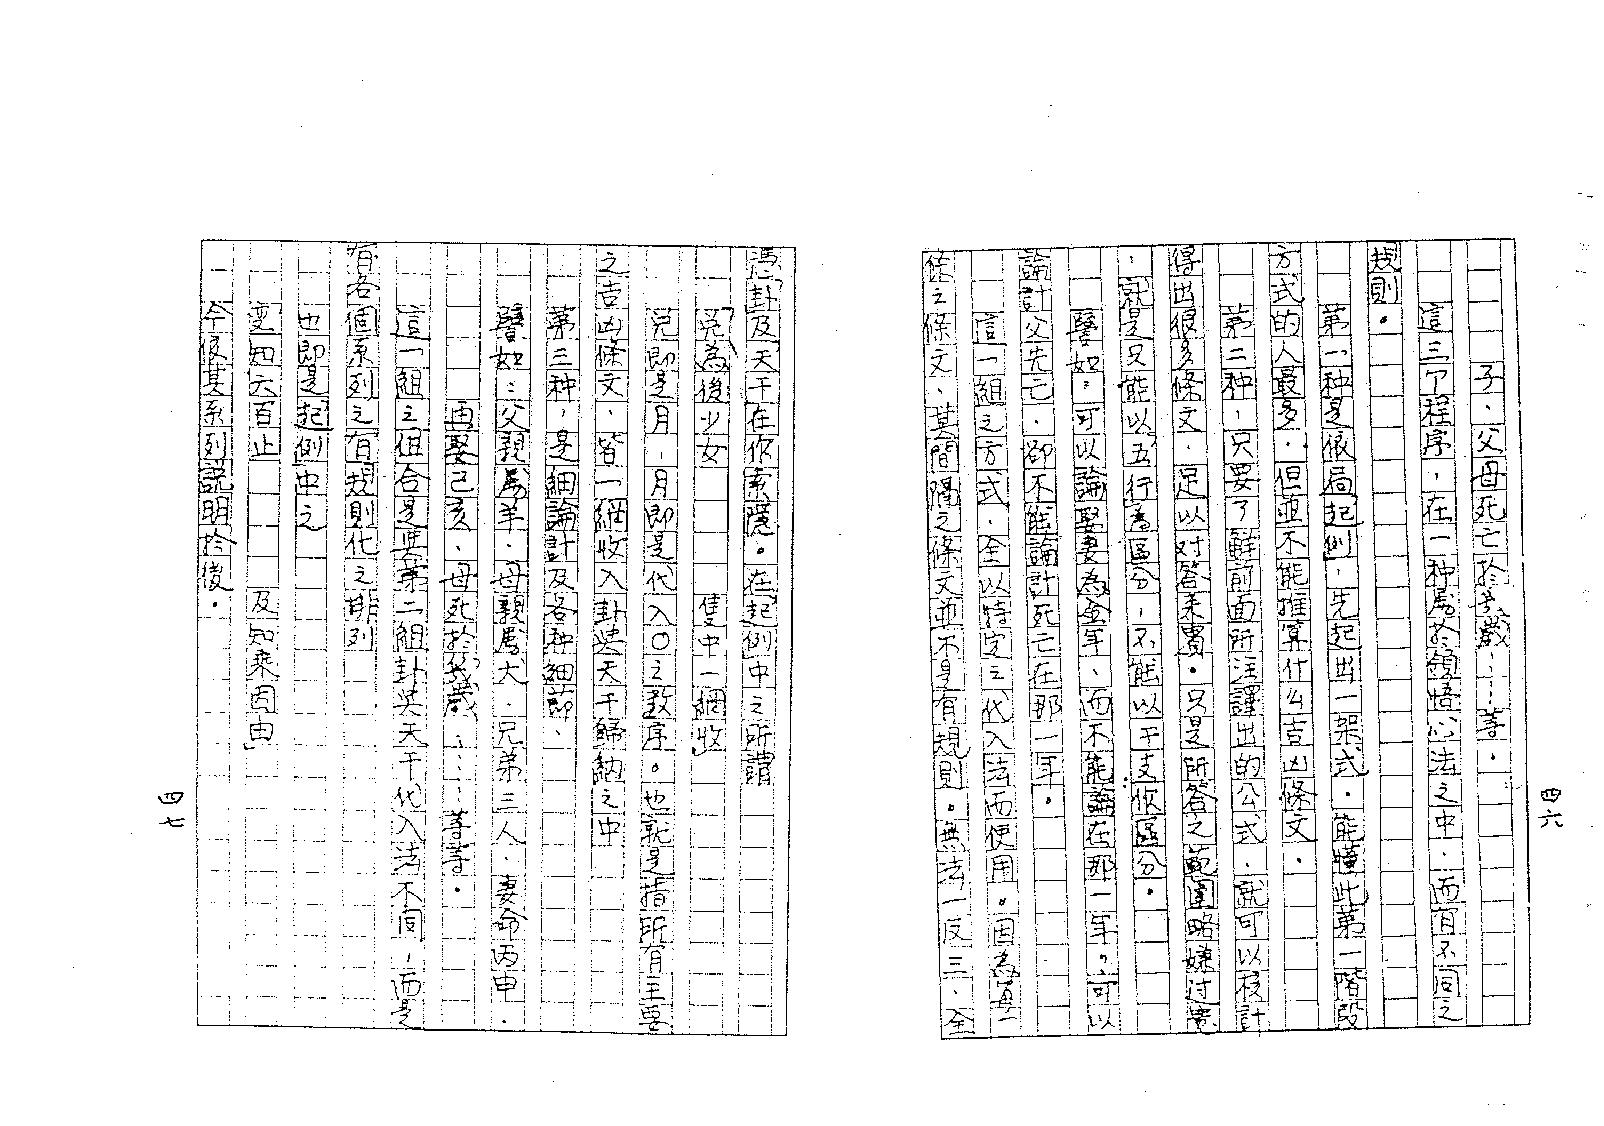 四六
子、父母死亡於幾歲……等。
這三个程序，在一种屬於領悟心法之中，而有不同之
規則。
第一种是依局起例，先起出一架式，能懂此第一階段
方式的人最多，但並不能推算什么吉凶條文。
第二种，只要了解前面所注譯出的公式，就可以核計
得出很多條文，足以对答来賓。只是所答之範圍略嫌过寬
，就是只能以五行為區分，不能以干支作區分。
譬如：可以論娶妻為金年、而不能論在那一年，可以
論計父先亡，卻不能論計死亡在那一年。
這一組之方式，全以特定之代入法而使用。因為其一
條之條文、其間隔之條文並不是有規則。無法一反三、全
憑卦及天干在作索隱。在起例中之所謂
「兌為後少女　　　隻中一網收」
兌即是月，月即是代入〇之数序。也就是指所有主要
之吉凶條文，皆一網收入卦與天干歸納之中
第三种，是細論計及各种細節、
譬如：父親屬羊、母親屬犬、兄弟三人、妻命丙申、
再娶己亥、母死於幾歲、……等等。
這一組之組合是與第二組卦與天干代入法不同，而是
有各個系列之有規則化之排列
也即是起例中之
「変知六百止　　　及知来因由」
今依其系列說明於後。
四七